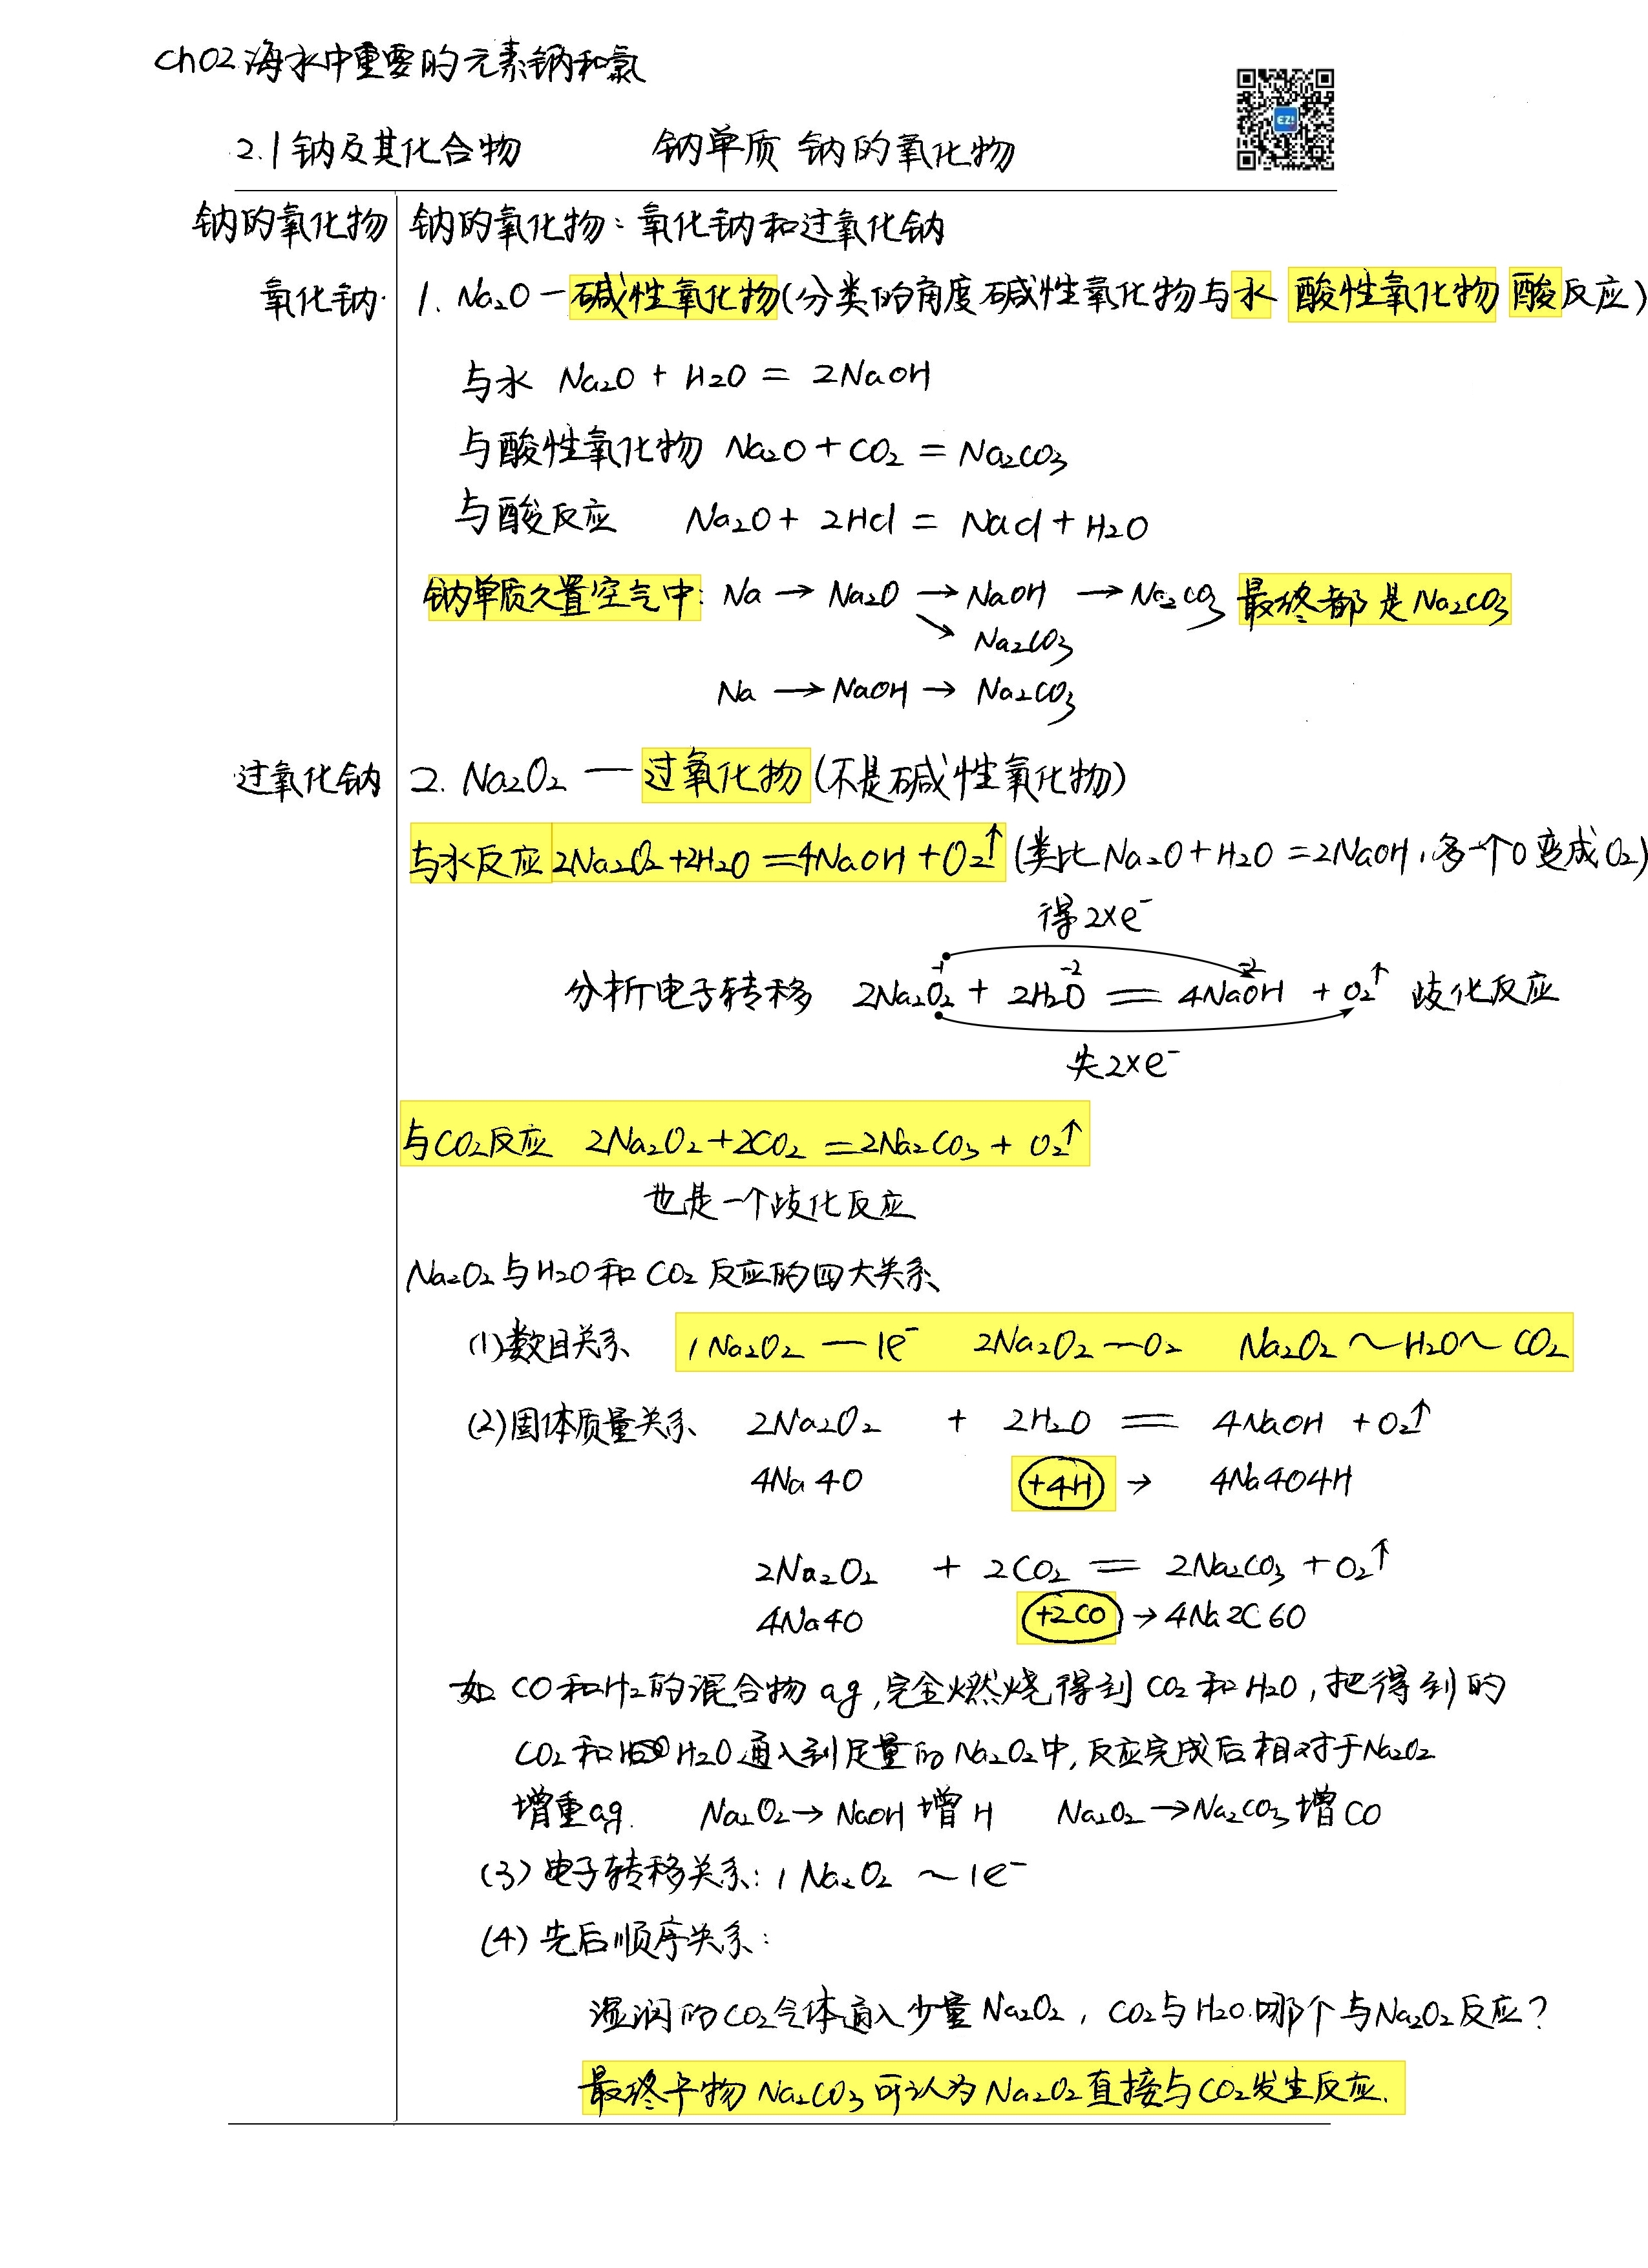 Ch02 海水中重要的元素钠和氯
2.1 钠及其化合物 钠单质 钠的氧化物
钠的氧化物 钠的氧化物：氧化钠和过氧化钠
氧化钠 1. Na₂O — 碱性氧化物(分类的角度碱性氧化物与水 酸性氧化物 酸反应)
与水 Na₂O + H₂O = 2NaOH
与酸性氧化物 Na₂O + CO₂ = Na₂CO₃
与酸反应 Na₂O + 2HCl = NaCl + H₂O
钠单质久置空气中: Na → Na₂O → NaOH → Na₂CO₃ 最终都是Na₂CO₃
↘ Na₂CO₃
Na → NaOH → Na₂CO₃
过氧化钠 2. Na₂O₂ — 过氧化物 (不是碱性氧化物)
与水反应 2Na₂O₂+2H₂O =4NaOH +O₂↑ (类比Na₂O+H₂O =2NaOH，多一个O变成O₂)
得2×e⁻
-1 -2 -2
分析电子转移 2Na₂O₂ + 2H₂O = 4NaOH + O₂↑ 歧化反应
失2×e⁻
与CO₂反应 2Na₂O₂+2CO₂ =2Na₂CO₃ + O₂↑
也是一个歧化反应
Na₂O₂与H₂O和CO₂反应的四大关系
(1)数目关系 1Na₂O₂ — 1e⁻ 2Na₂O₂—O₂ Na₂O₂～H₂O～CO₂
(2)固体质量关系 2Na₂O₂ + 2H₂O = 4NaOH + O₂↑
4Na 4O +4H → 4Na4O4H
2Na₂O₂ + 2CO₂ = 2Na₂CO₃ + O₂↑
4Na4O +2CO → 4Na2C6O
如 CO和H₂的混合物ag,完全燃烧得到CO₂和H₂O，把得到的
CO₂和H₂O通入到足量的Na₂O₂中,反应完成后相对于Na₂O₂
增重ag. Na₂O₂→NaOH增H Na₂O₂→Na₂CO₃增CO
(3)电子转移关系: 1Na₂O₂ ～ 1e⁻
(4)先后顺序关系:
湿润的CO₂气体通入少量Na₂O₂，CO₂与H₂O.哪个与Na₂O₂反应？
最终产物Na₂CO₃可认为Na₂O₂直接与CO₂发生反应.